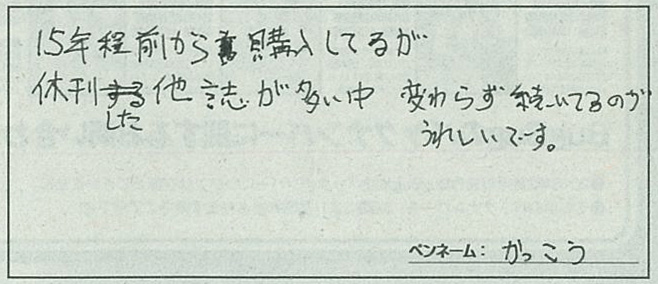 15年程前から購入してるが
休刊した他誌が多い中 変わらず続いてるのが
うれしいです。
ペンネーム: かっこう